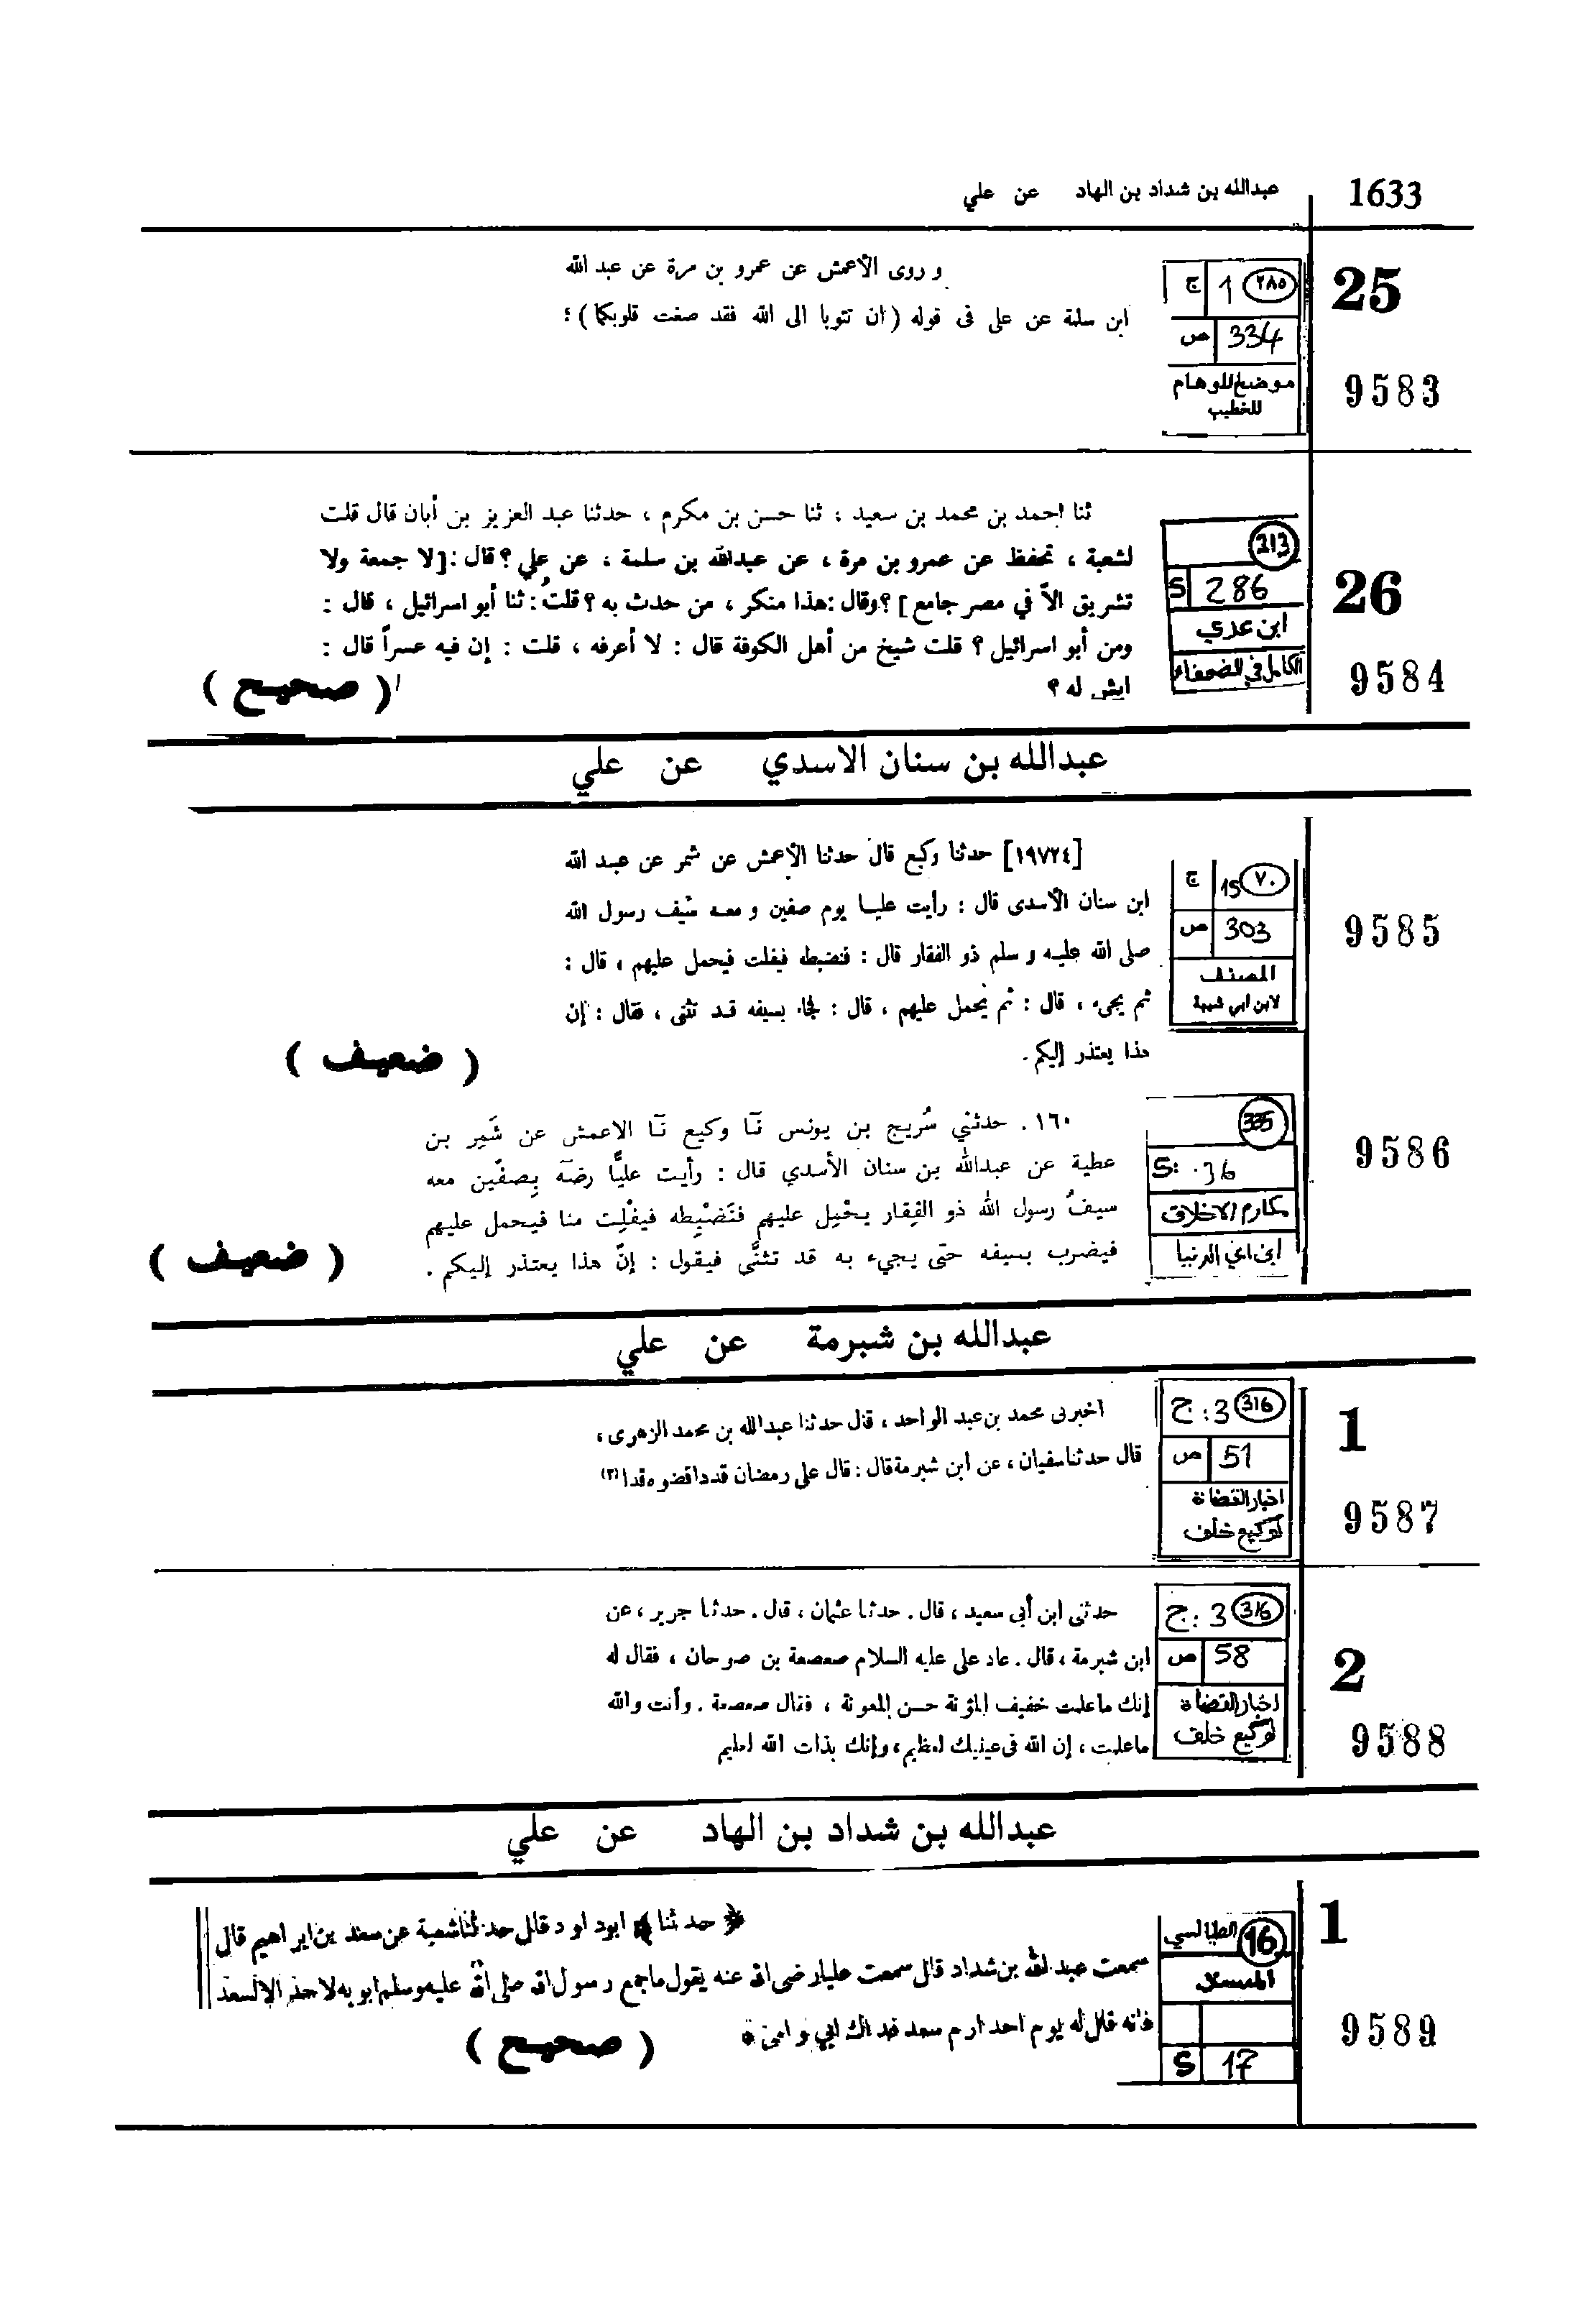 1633
عبدالله بن شداد بن الهاد عن علي
25
9583
ج 1 ٢٨٥
ص 334
موضح الاوهام
للخطيب
و روى الأعمش عن عمرو بن مرة عن عبد الله
ابن سلمة عن على فى قوله ( ان تتوبا الى الله فقد صغت قلوبكما ) ؛
26
9584
213
S 286
ابن عدي
الكامل في الضعفاء
ثنا احمد بن محمد بن سعيد ، ثنا حسن بن مكرم ، حدثنا عبد العزيز بن أبان قال قلت
لشعبة ، تحفظ عن عمرو بن مرة ، عن عبدالله بن سلمة ، عن علي ؟ قال : [ لا جمعة ولا
تشريق الاّ في مصر جامع ] ؟ وقال : هذا منكر ، من حدث به ؟ قلتُ : ثنا أبو اسرائيل ، قال :
ومن أبو اسرائيل ؟ قلت شيخ من أهل الكوفة قال : لا أعرفه ، قلت : إن فيه عسراً قال :
ايش له ؟
( صحيح )
عبدالله بن سنان الاسدي عن علي
9585
ج 15 ٧٠
ص 303
المصنف
لابن ابي شيبة
[١٩٧٢٤] حدثنا وكيع قال حدثنا الأعمش عن شمر عن عبد الله
ابن سنان الأسدى قال : رأيت عليا يوم صفين و معه سيف رسول الله
صلى الله عليه و سلم ذو الفقار قال : فنضبطه فيفلت فيحمل عليهم ، قال :
ثم يجىء ، قال : ثم يحمل عليهم ، قال : فجاء بسيفه قد تثنى ، فقال : إن
هذا يعتذر إليكم .
( ضعيف )
9586
335
S: 36
مكارم الاخلاق
ابن ابي الدنيا
١٦٠ . حدثني سُريج بن يونس نَا وكيع نَا الاعمش عن شَمِر بن
عطية عن عبدالله بن سنان الأسدي قال : رأيت عليًّا رضَه بِصفّين معه
سيفُ رسول الله ذو الفِقار يحْمِل عليهم فنَضْبِطه فيفْلِت منا فيحمل عليهم
فيضرب بسيفه حتى يجيء به قد تثنَّى فيقول : إنّ هذا يعتذر إليكم .
( ضعيف )
عبدالله بن شبرمة عن علي
1
9587
ج : 3 316
ص 51
اخبار القضاة
لوكيع خلف
اخبرنى محمد بن عبد الواحد ، قال حدثنا عبدالله بن محمد الزهرى ،
قال حدثنا سفيان ، عن ابن شبرمة قال : قال على رمضان قددا قضوه قددا (٣)
2
9588
ج : 3 316
ص 58
اخبار القضاة
لوكيع خلف
حدثنى ابن أبى سعيد ، قال . حدثنا عثمان ، قال . حدثنا جرير ، عن
ابن شبرمة ، قال . عاد على عليه السلام صعصعة بن صوحان ، فقال له
إنك ما علمت خفيف المؤنة حسن المعونة ، فقال صعصعة . وأنت والله
ما علمت ، إن الله فى عينيك لعظيم ، وإنك بذات الله لعليم
عبدالله بن شداد بن الهاد عن علي
1
9589
الطيالسي 16
المسند
S 17
﴿ حدثنا ﴾ ابو داود قال حدثنا شعبة عن سعد بن ابراهيم قال
سمعت عبد الله بن شداد قال سمعت عليا رضى الله عنه يقول ما جمع رسول الله صلى الله عليه وسلم ابويه لاحد الا لسعد
فانه قال له يوم احد ارم سعد فداك ابى و امى *
( صحيح )